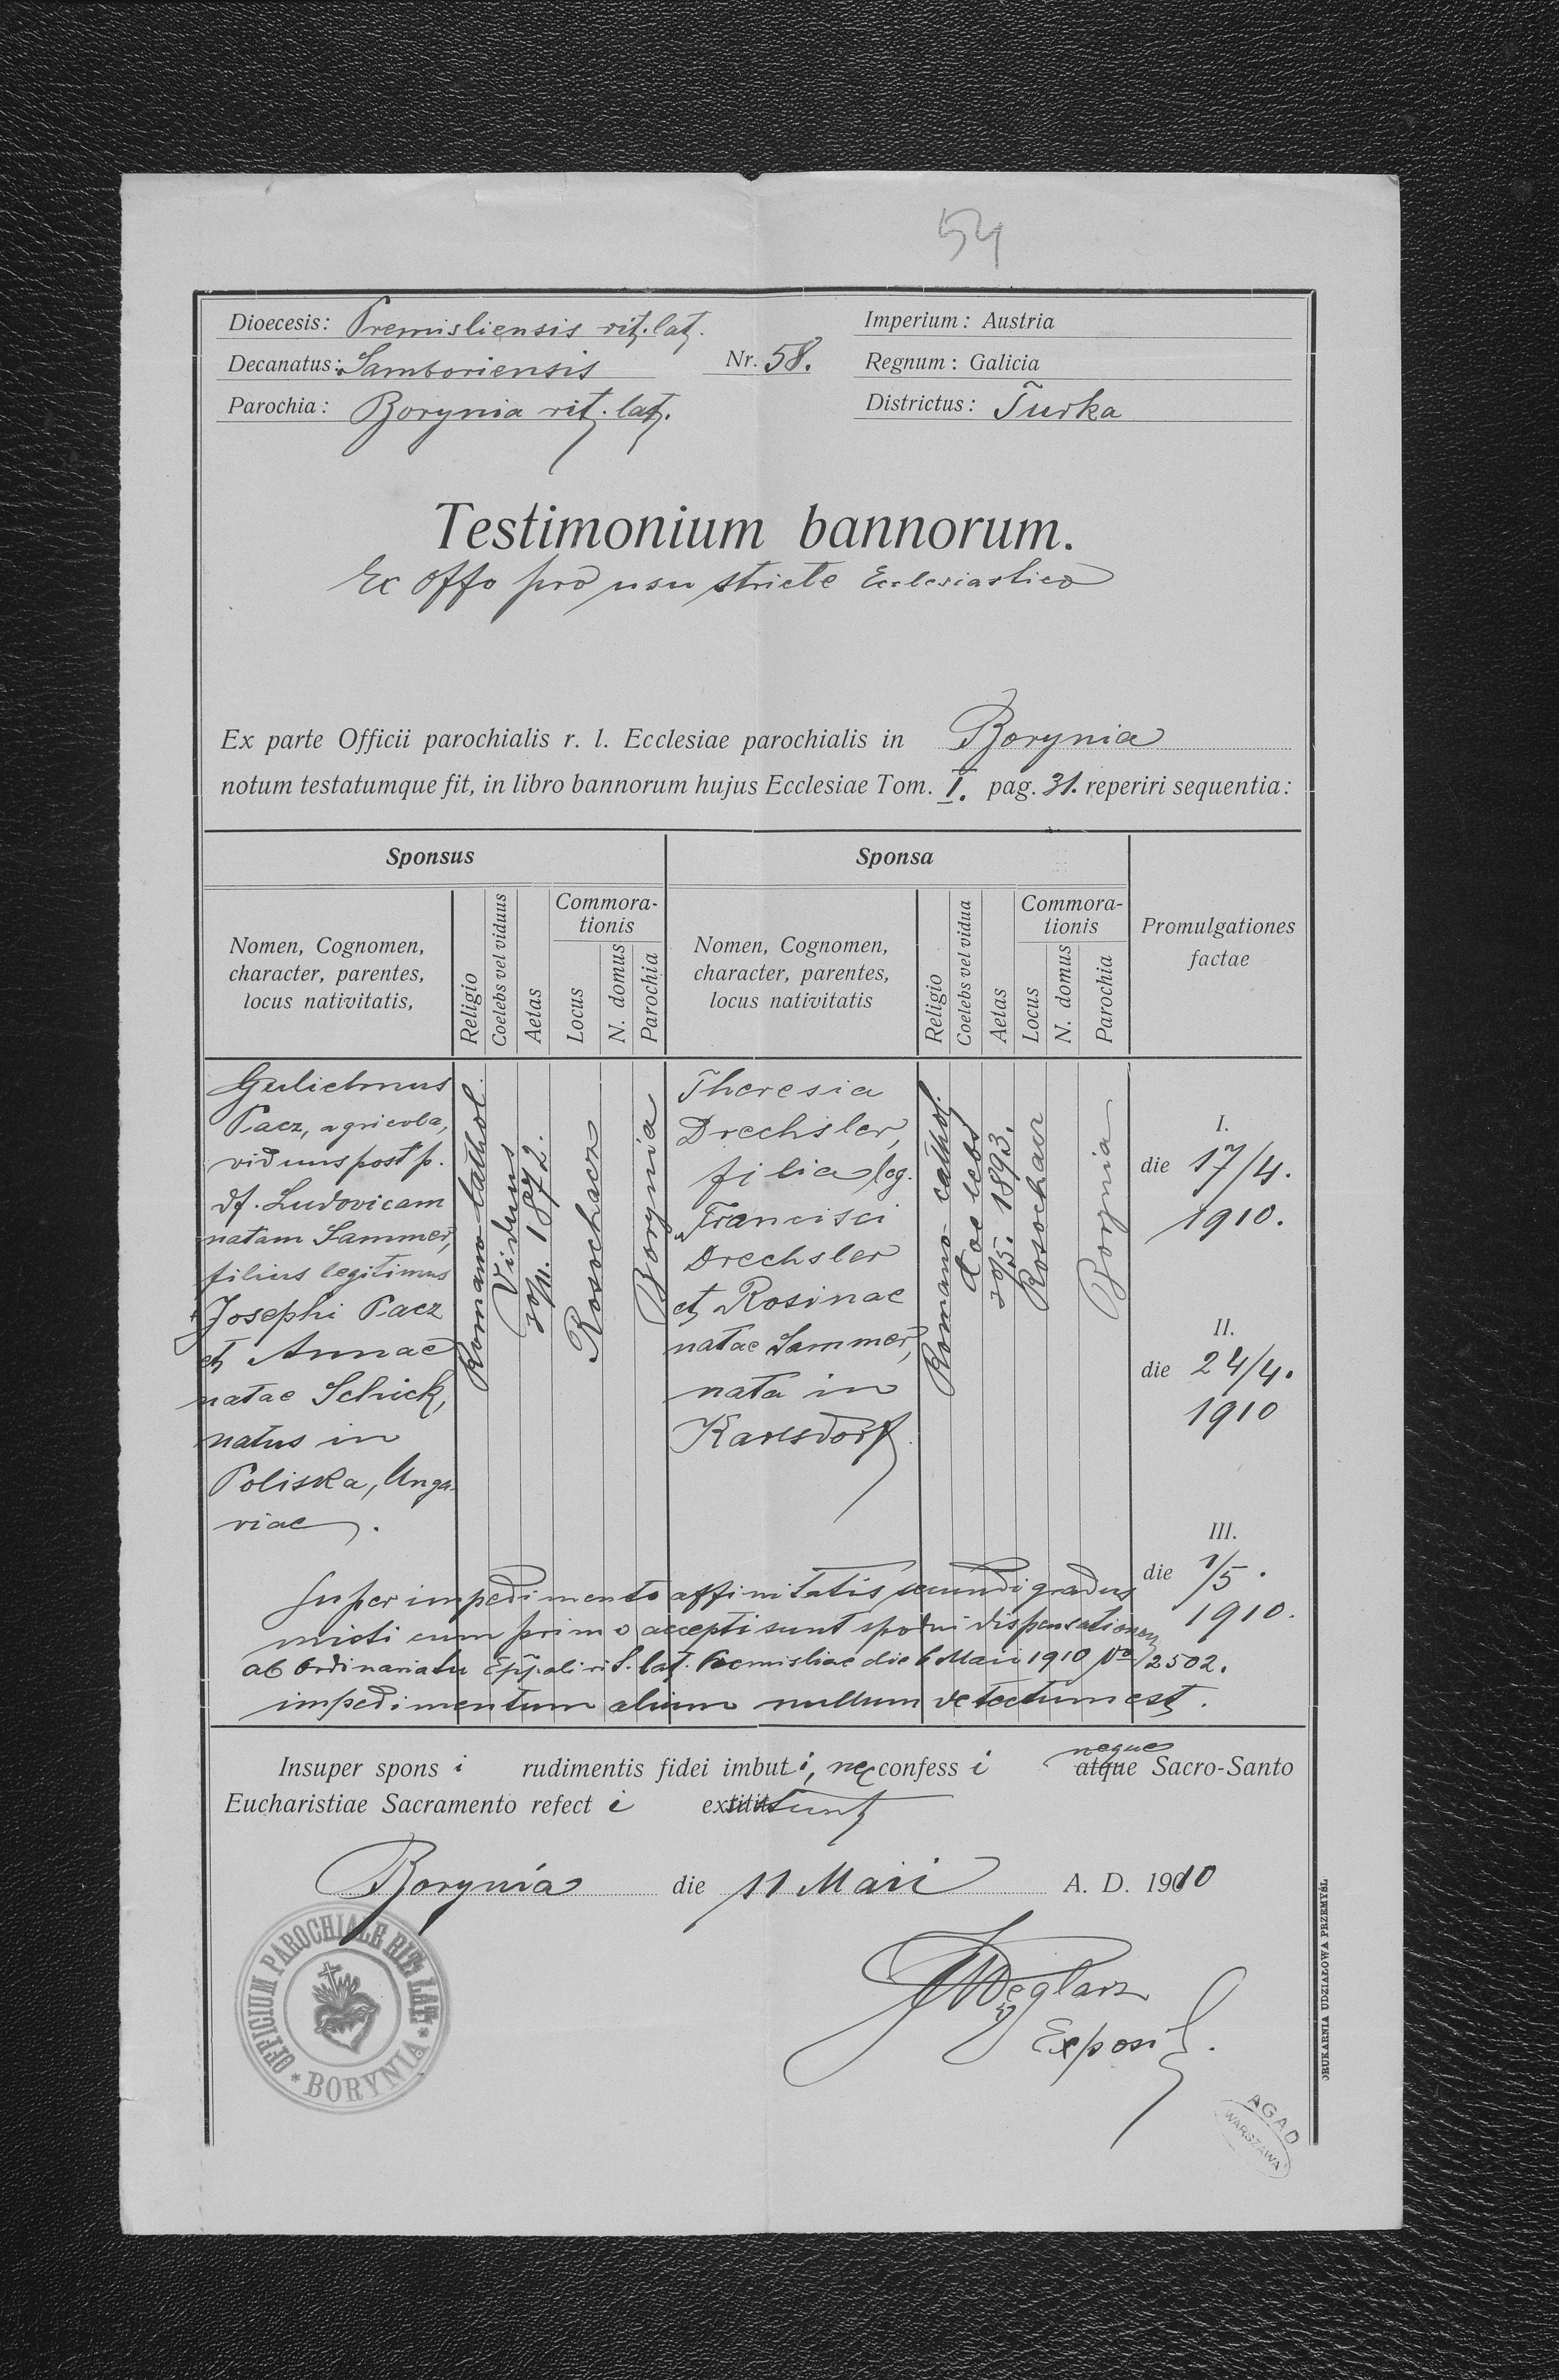 54
Dioecesis: Premisliensis rit. lat.
Decanatus: Samboriensis
Parochia: Borynia rit. lat.
Nr. 58.
Imperium: Austria
Regnum: Galicia
Districtus: Turka
Testimonium bannorum.
Ex offo pro usu stricte Ecclesiastico
Ex parte Officii parochialis r. l. Ecclesiae parochialis in Borynia
notum testatumque fit, in libro bannorum hujus Ecclesiae Tom. I. pag. 31. reperiri sequentia:
Sponsus
Nomen, Cognomen,
character, parentes,
locus nativitatis,
Religio
Coelebs vel viduus
Aetas
Commora-
tionis
Locus
N. domus
Parochia
Sponsa
Nomen, Cognomen,
character, parentes,
locus nativitatis
Religio
Coelebs vel vidua
Aetas
Commora-
tionis
Locus
N. domus
Parochia
Promulgationes
factae
Gulielmus
Pacz, agricola,
viduus post p.
df. Ludovicam
natam Sammer,
filius legitimus
Josephi Pacz
et Annae
natae Schick,
natus in
Poliska, Unga-
riae.
Romano-cathol.
Viduus
20/11. 1872.
Rosochacz
Borynia
Theresia
Drechsler,
filia leg.
Francisci
Drechsler
et Rosinae
natae Sammer,
nata in
Karlsdorf
Romano-cathol.
Coelebs
20/5. 1893.
Rosochacz
Borynia
I.
die 17/4.
1910.
II.
die 24/4.
1910
III.
die 1/5.
1910.
Super impedimento affinitatis secundi gradus
mixti cum primo accepti sunt sponsi dispensationem
ab Ordinariatu Epp.ali rit. lat. Premisliae die 6 Maii 1910 No 2502.
impedimentum alium nullum detectum est.
Insuper spons i rudimentis fidei imbut i, nec confess i neque atque Sacro-Santo
Eucharistiae Sacramento refect i extitit unt
Borynia die 11 Maii A. D. 1910
JWęglarz
Exposit.
OFFICIUM PAROCHIALE RIT. LAT.
* BORYNIA *
DRUKARNIA UDZIAŁOWA PRZEMYŚL
AGAD
WARSZAWA